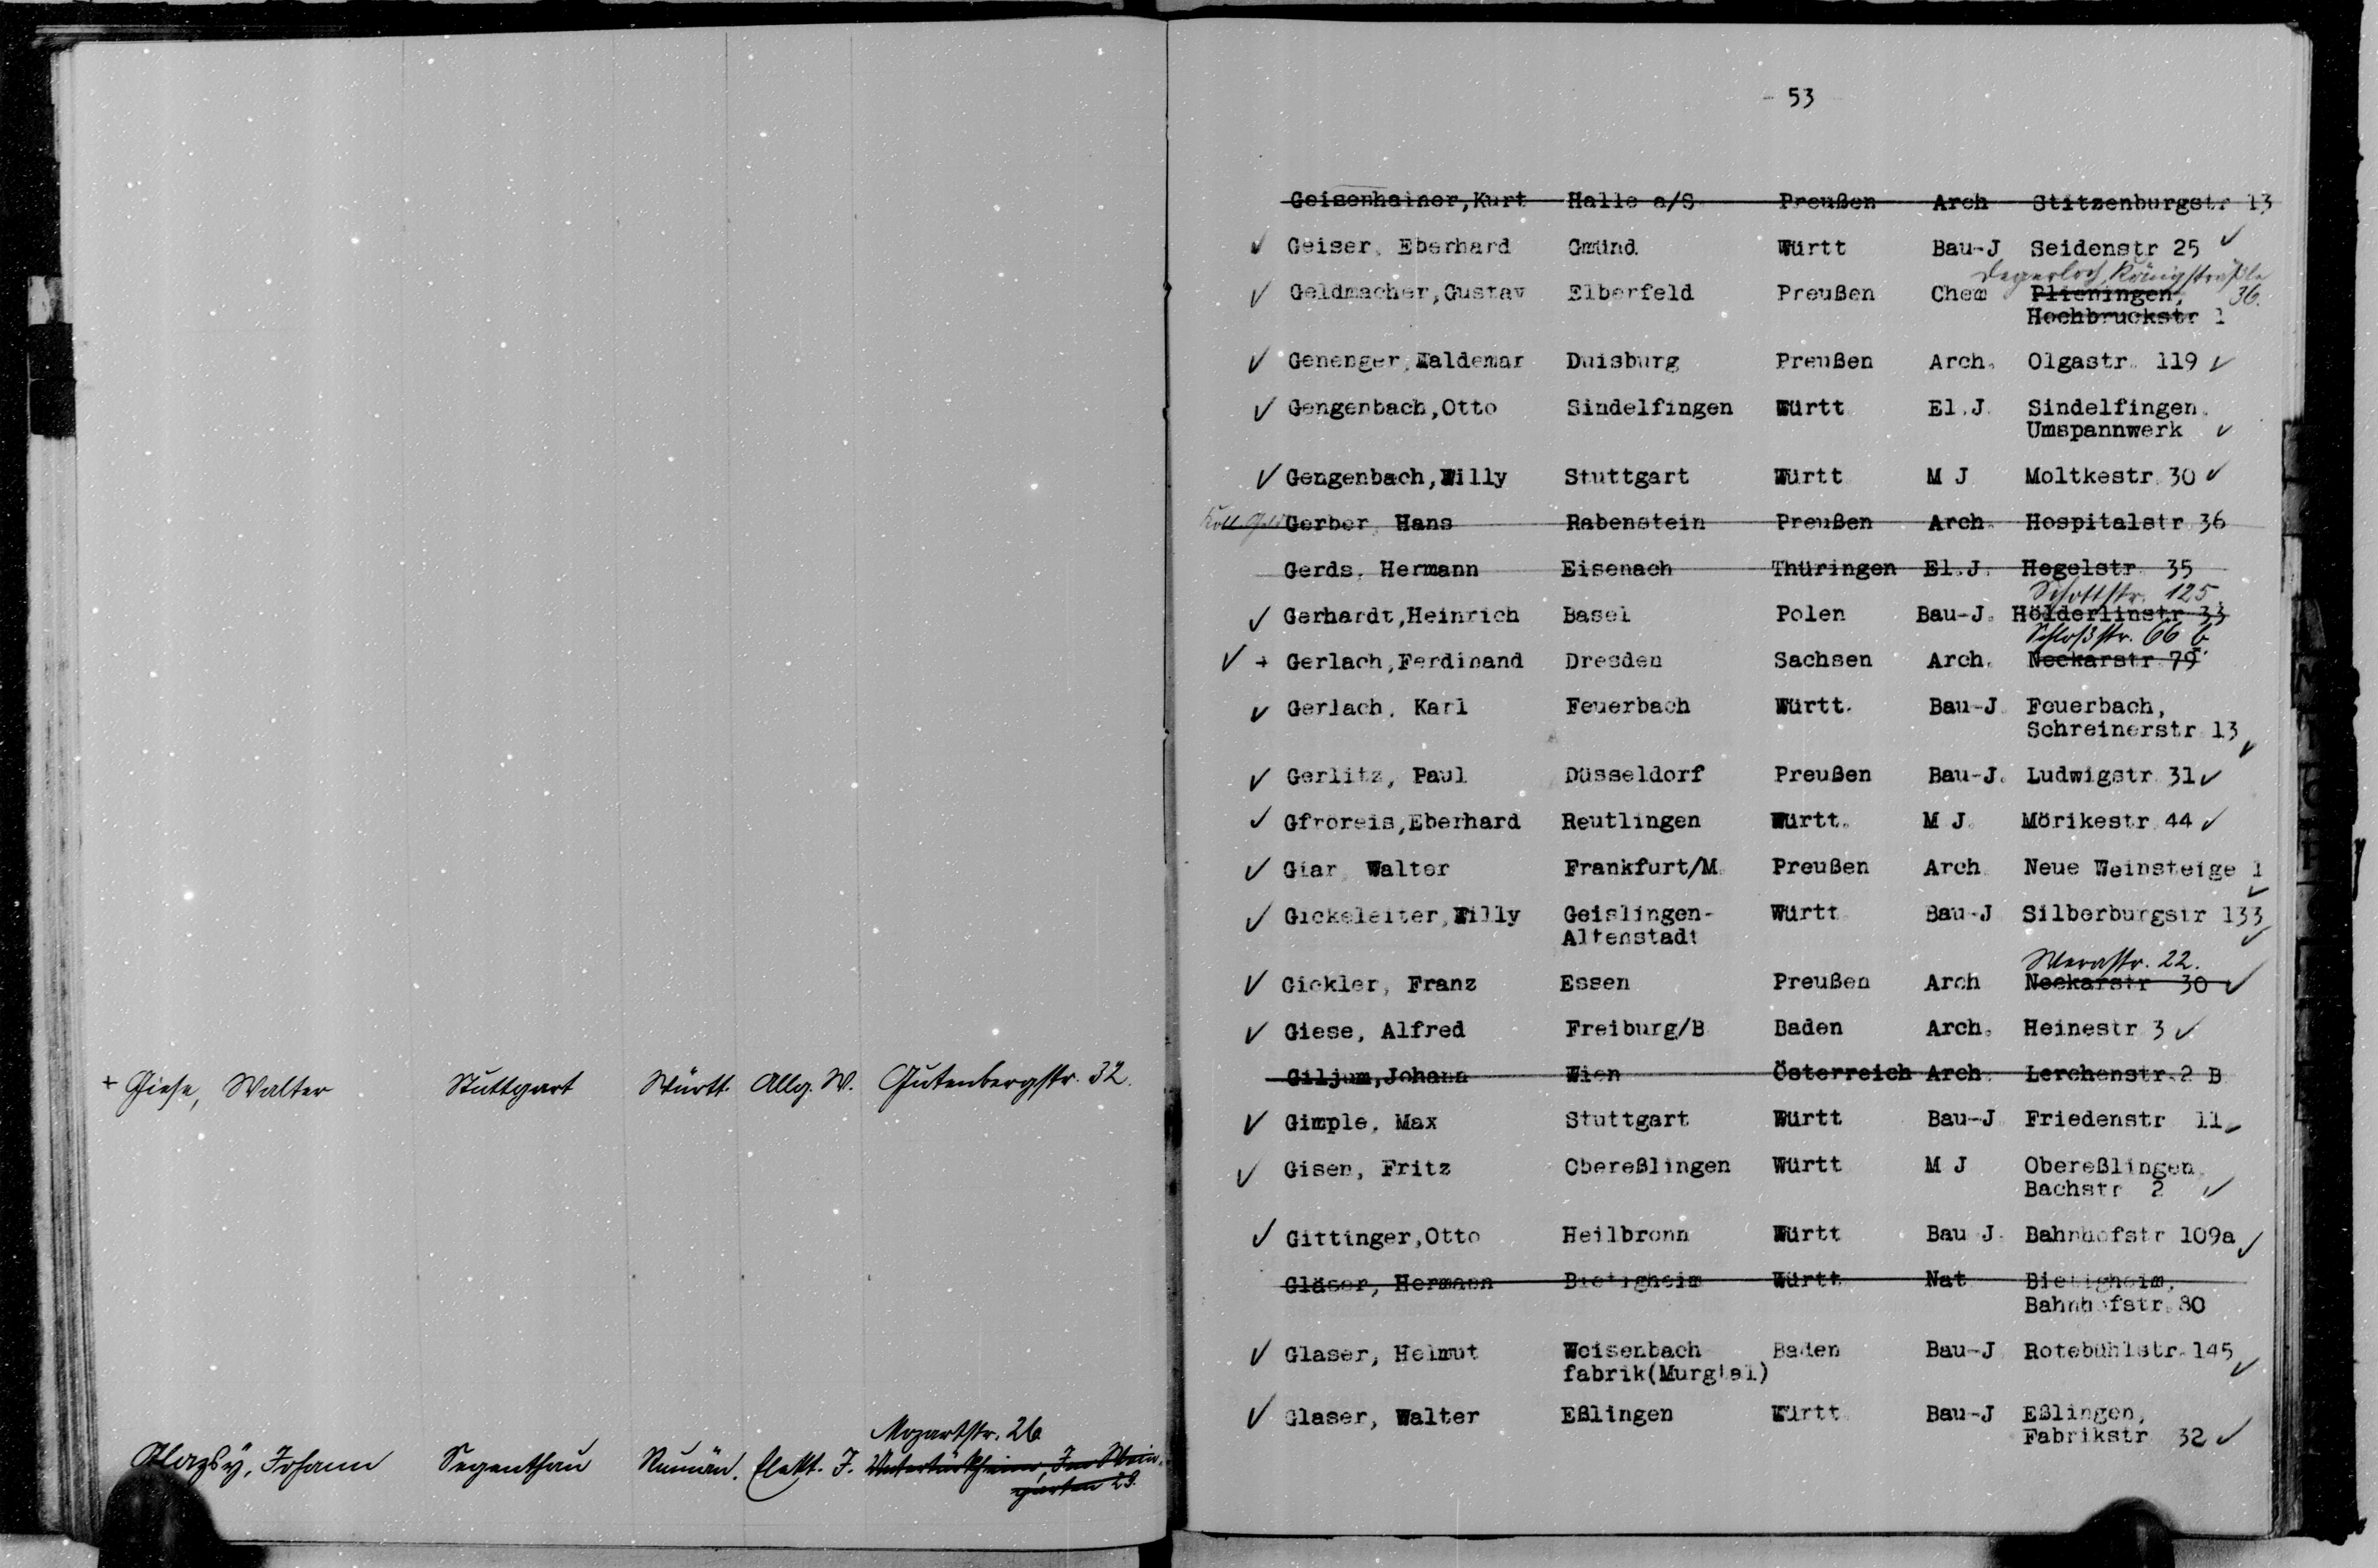 + Giese, Walter Stuttgart Württ. Allg. W. Gutenbergstr. 32.
Mozartstr. 26
Glazsy, Johann Segenthau Rumän. Elekt. J. Untertürkheim, Im Wein-
garten 29.
- 53
Geisenhainer,Kurt Halle a/S Preußen Arch Stitzenburgstr 13
✓ Geiser, Eberhard Gmünd. Württ Bau-J Seidenstr 25 ✓
Degerloch, Königsträßle
✓ Geldmacher,Gustav Elberfeld Preußen Chem Plieningen, 36.
Hochbruckstr 1
✓ Genenger,Waldemar Duisburg Preußen Arch. Olgastr. 119 ✓
✓ Gengenbach,Otto Sindelfingen Württ El.J. Sindelfingen.
Umspannwerk ✓
✓ Gengenbach,Willy Stuttgart Württ M J Moltkestr. 30 ✓
Gerber, Hans Rabenstein Preußen Arch. Hospitalstr. 36
Gerds, Hermann Eisenach Thüringen El.J. Hegelstr. 35
Schottstr. 125
✓ Gerhardt,Heinrich Basel Polen Bau-J. Hölderlinstr 33
Schloßstr. 66 b.
✓ + Gerlach,Ferdinand Dresden Sachsen Arch. Neckarstr. 79
✓ Gerlach, Karl Feuerbach Württ. Bau-J Feuerbach,
Schreinerstr 13 ✓
✓ Gerlitz, Paul Düsseldorf Preußen Bau-J. Ludwigstr. 31 ✓
✓ Gfröreis,Eberhard Reutlingen Württ. M J. Mörikestr. 44 ✓
✓ Giar, Walter Frankfurt/M. Preußen Arch Neue Weinsteige 1 ✓
✓ Gickeleiter,Willy Geislingen- Württ Bau-J Silberburgstr 133 ✓
Altenstadt
Werastr. 22.
✓ Gickler, Franz Essen Preußen Arch Neckarstr 30 ✓
✓ Giese, Alfred Freiburg/B Baden Arch. Heinestr 3 ✓
Giljum,Johann Wien Österreich Arch. Lerchenstr.2 B
✓ Gimple, Max Stuttgart Württ Bau-J Friedenstr 11 ✓
✓ Gisen, Fritz Obereßlingen Württ M J Obereßlingen,
Bachstr 2 ✓
✓ Gittinger,Otto Heilbronn Württ Bau J. Bahnhofstr 109a ✓
Gläser, Hermann Bietigheim Württ Nat Bietigheim,
Bahnhofstr. 80
✓ Glaser, Helmut Weisenbach Baden Bau-J Rotebühlstr. 145 ✓
fabrik(Murgtal)
✓ Glaser, Walter Eßlingen Württ Bau-J Eßlingen,
Fabrikstr 32 ✓